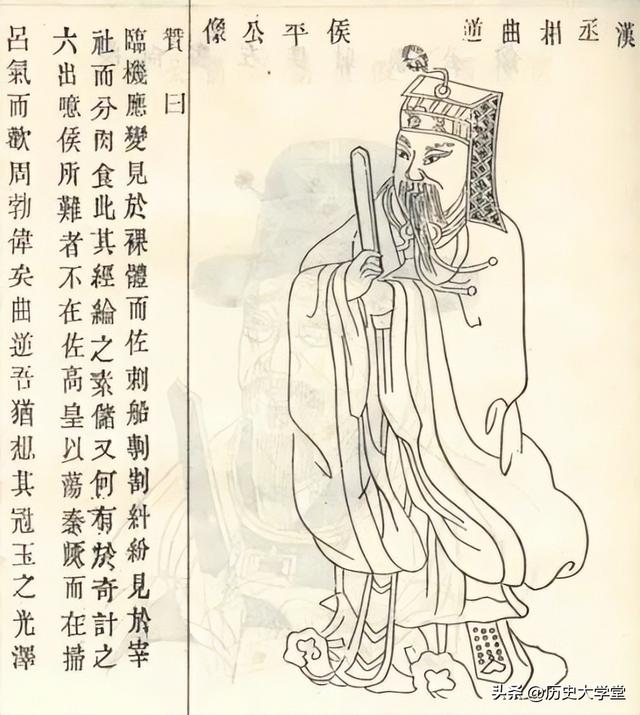 漢丞相曲逆侯平公像
贊曰
臨機應變見於裸體而佐刺船剸割糾紛見於宰
社而分肉食此其經綸之素儲又何有於奇計之
六出噫侯所難者不在佐高皇以蕩秦而在掃
呂氣而歡周勃偉矣曲逆吾猶想其冠玉之光澤
头条@历史大学堂